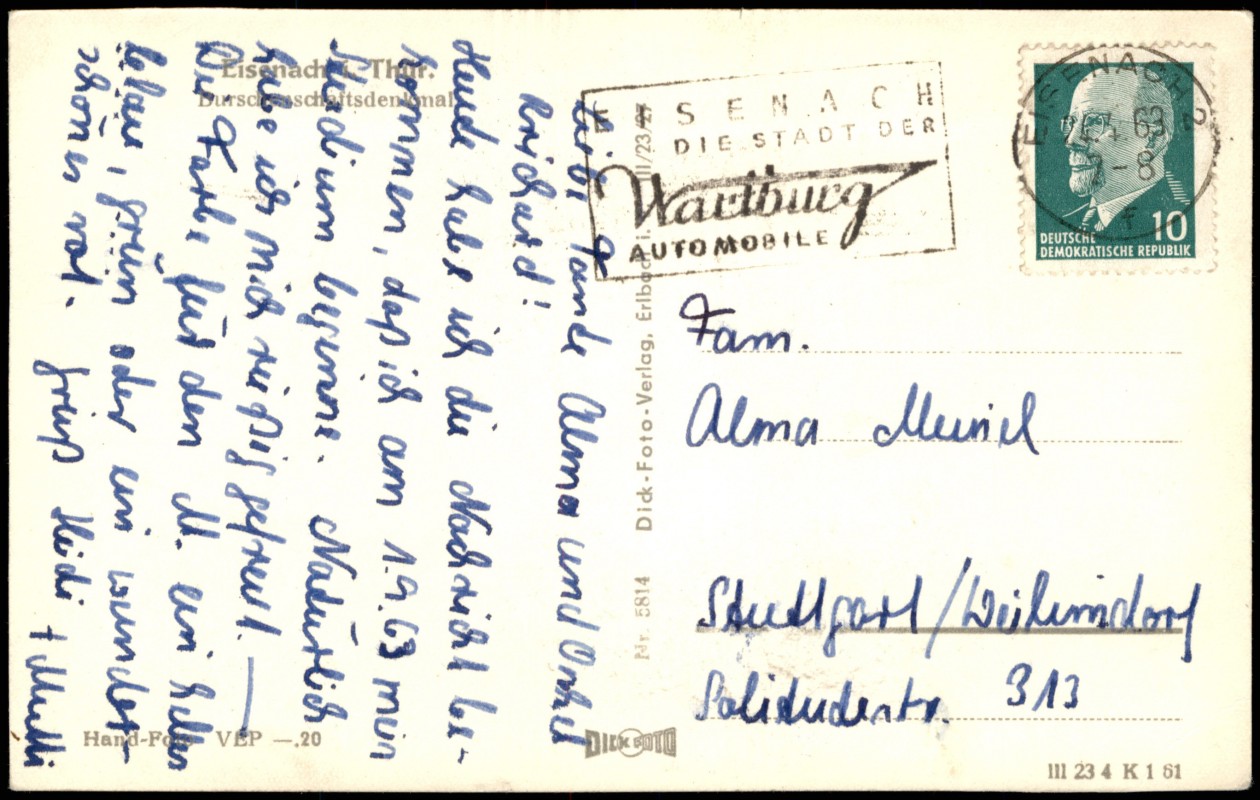 Eisenach i. Thür.
Burschenschaftsdenkmal
Liebe Tante Alma und Onkel
Richard!
Heute habe ich die Nachricht be-
kommen, daß ich am 1.9.63 mein
Studium beginne. Natürlich
habe ich mich riesig gefreut. —
Die Farbe für den M. ein helles
blau, grün oder ein wunder-
schönes rot. Gruß Heidi
+ Mutti
Hand-Foto VEP —.20
Nr. 5814 Dick-Foto-Verlag, Erlbach i. III/23/27
DICK FOTO
EISENACH
DIE STADT DER
Wartburg
AUTOMOBILE
EISENACH 2
63
-8
f
10
DEUTSCHE
DEMOKRATISCHE REPUBLIK
Fam.
Alma Meinel
Stuttgart/Weilimdorf
Solitudestr. 313
III 23 4 K 1 61